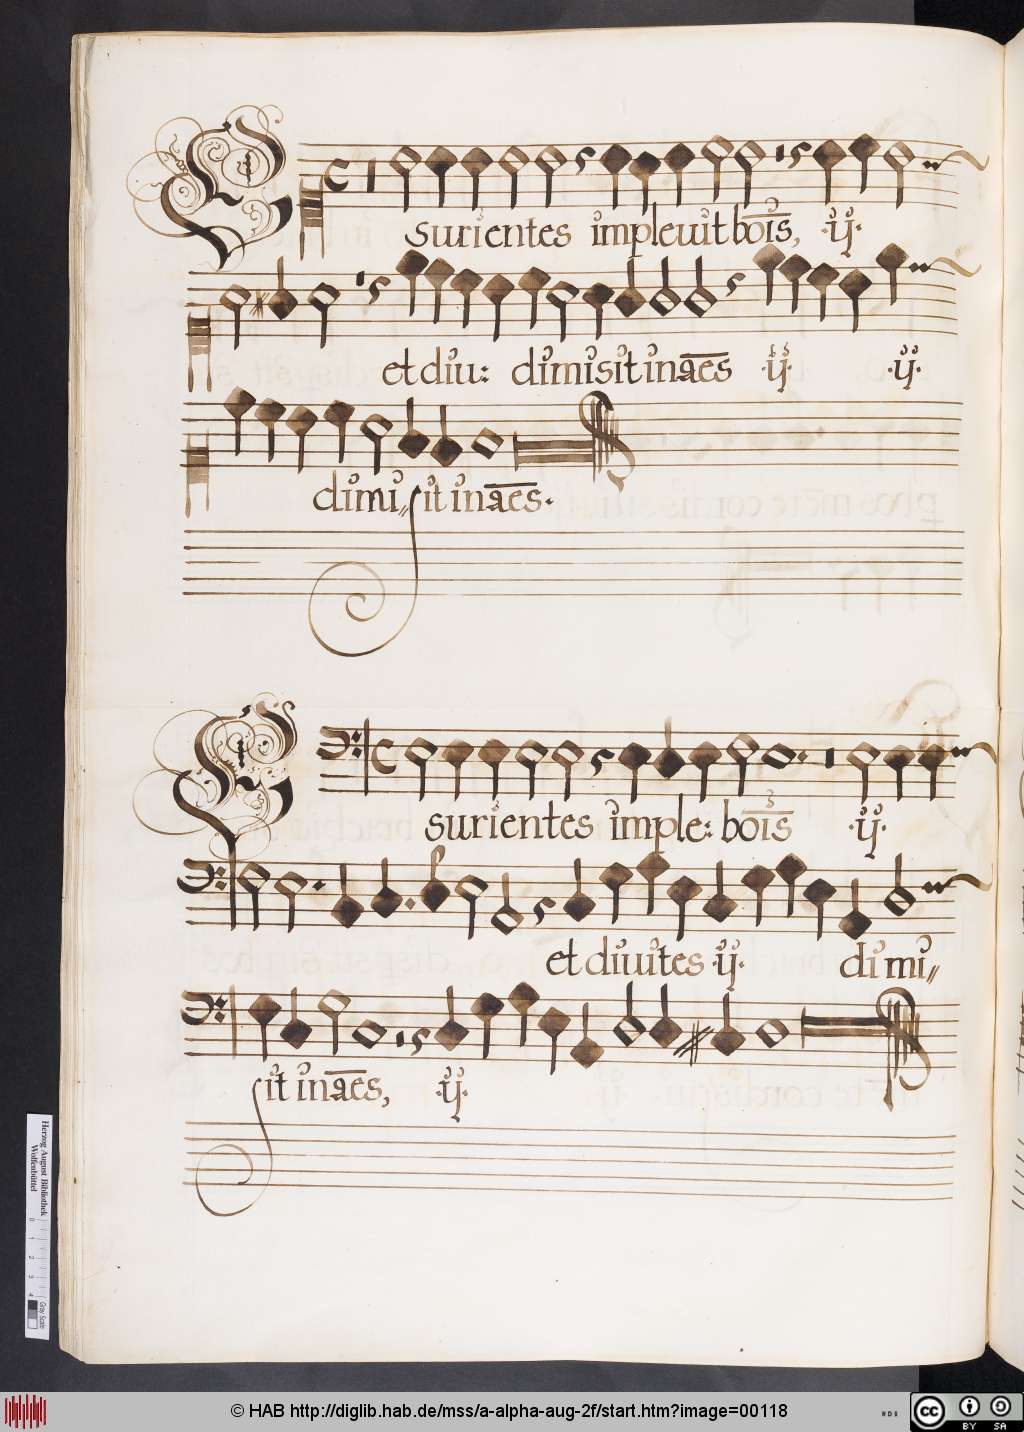 Esurientes impleuit bōis, ·ij·
et diu: dimisit ināes ·ij· ·ij·
dimi〃sit ināes·
Esurientes imple: bōis ·ij·
et diuites ·ij· dimi〃
sit ināes, ·ij·
Herzog August Bibliothek
Wolfenbüttel
0 1 2 3 4
Gray Scale
© HAB http://diglib.hab.de/mss/a-alpha-aug-2f/start.htm?image=00118
cc BY SA